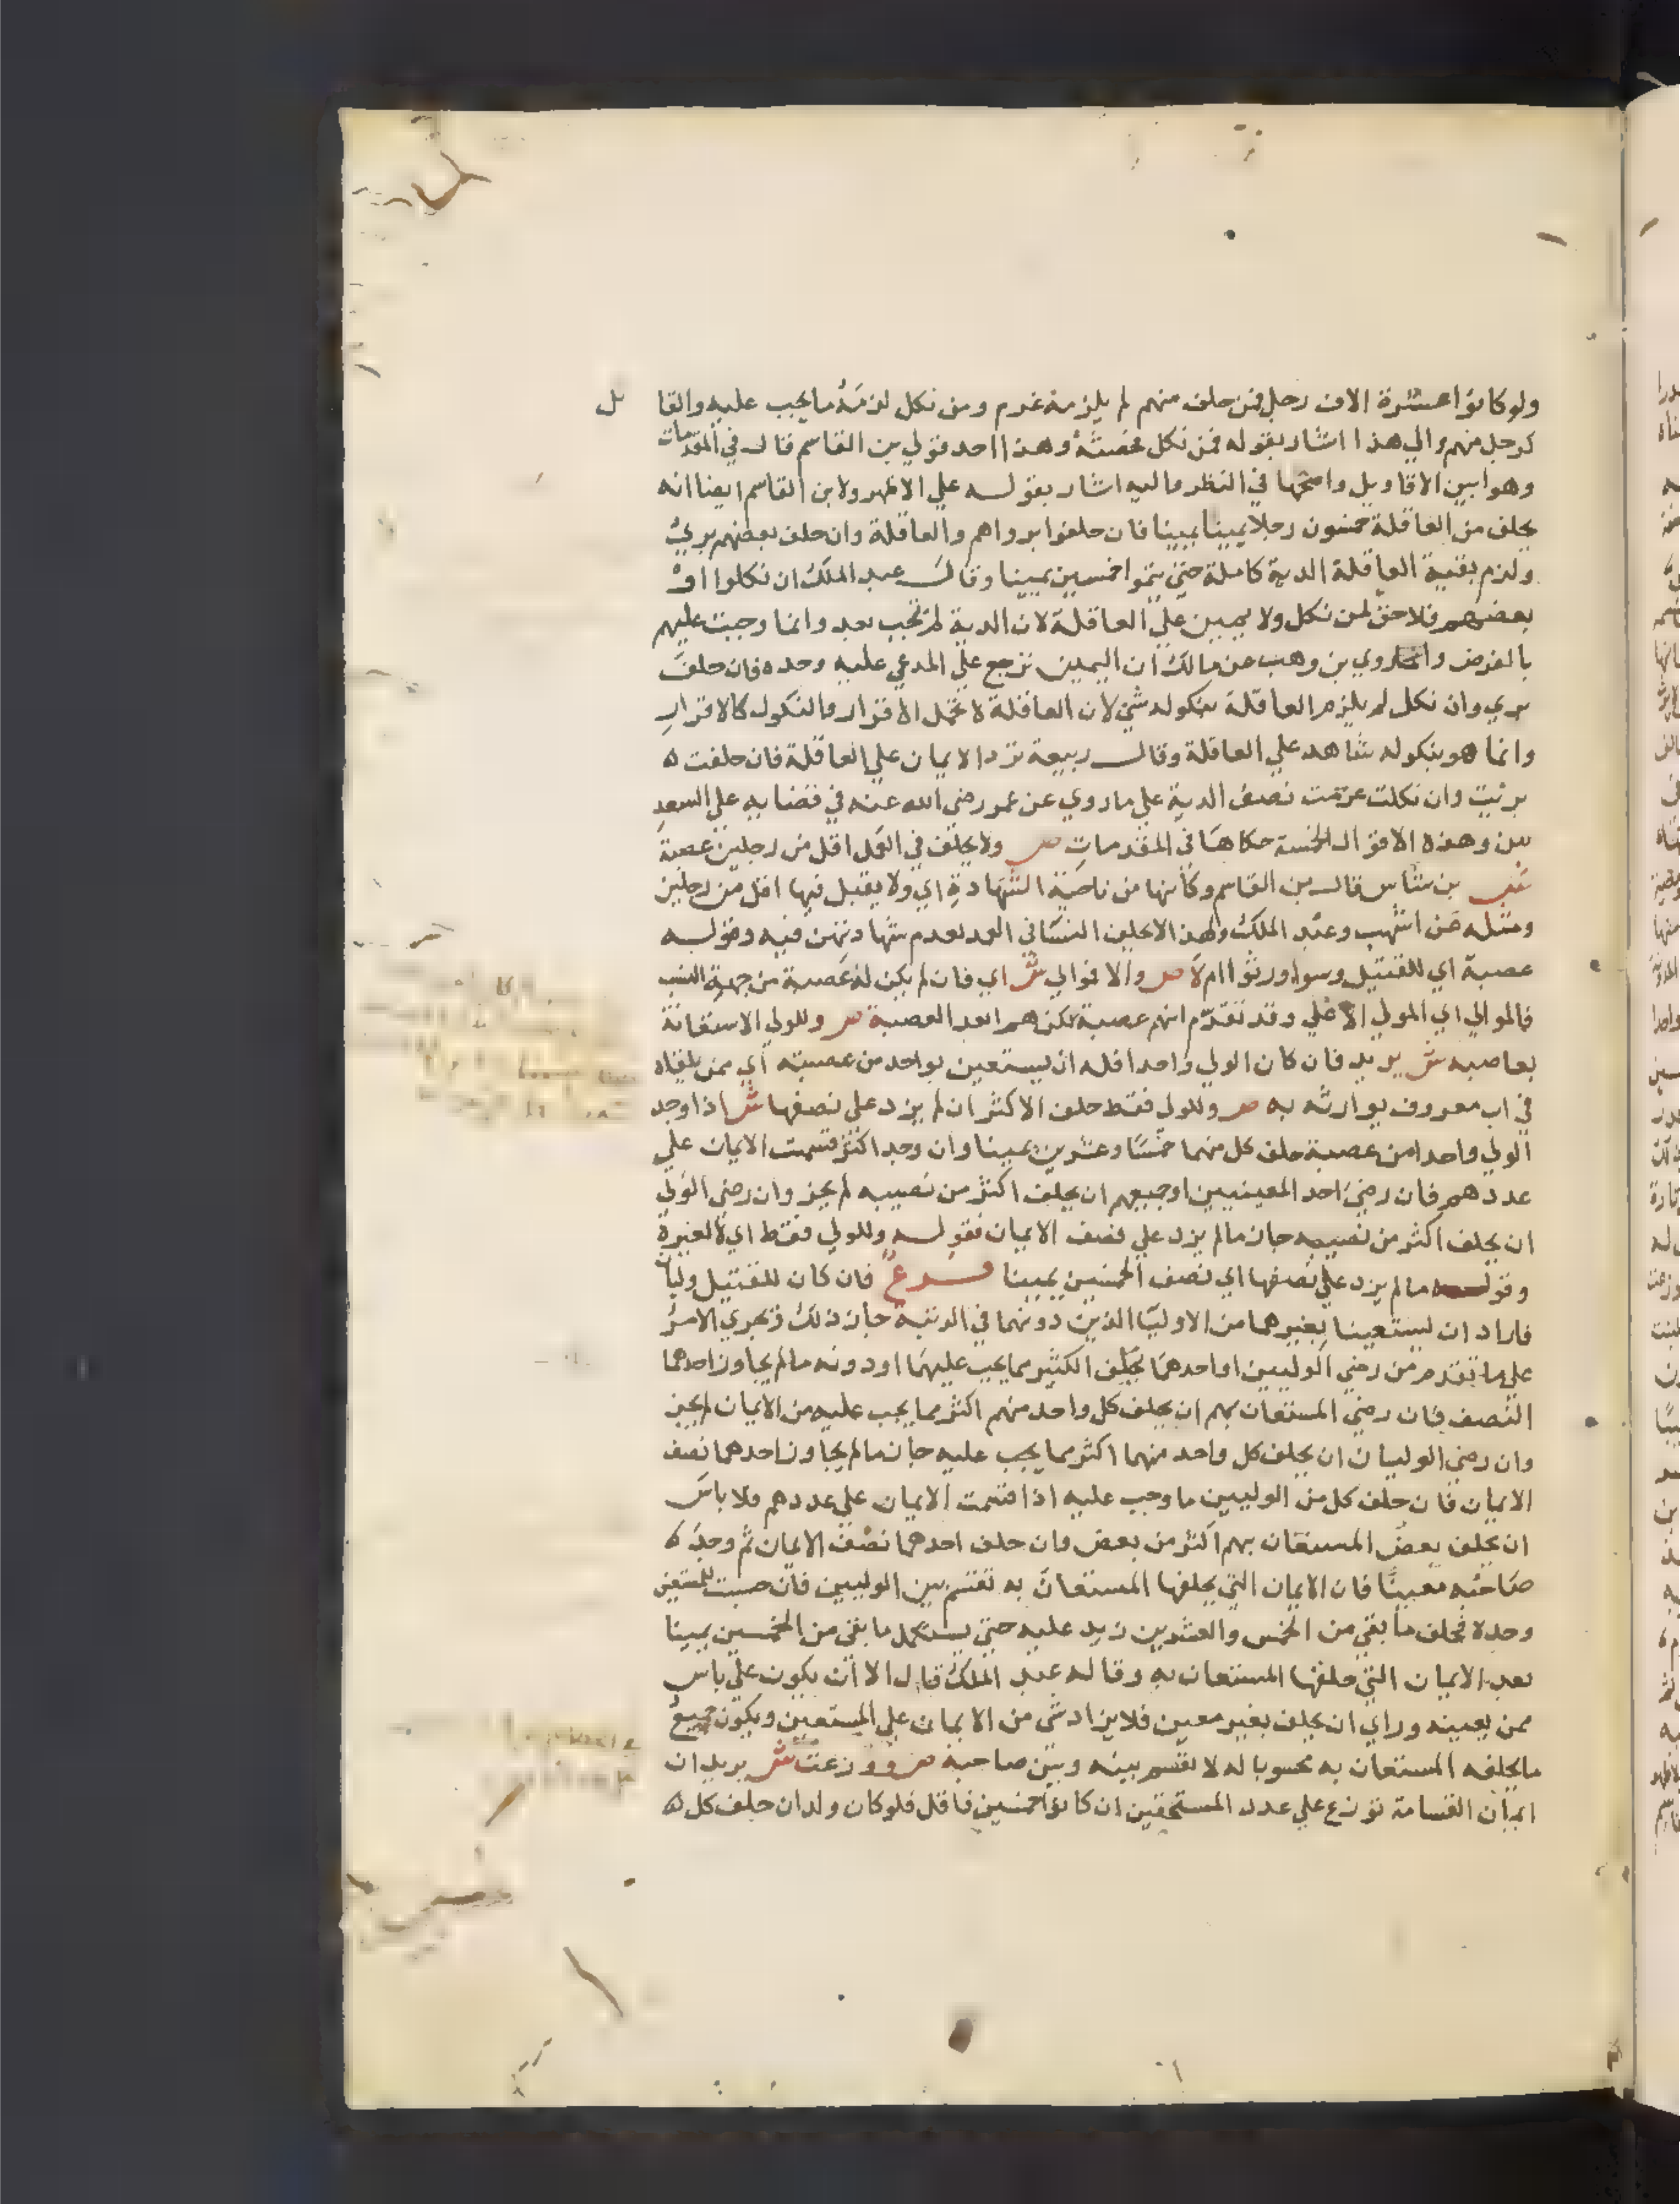 ولو كانوا عشرة الاف رجل فمن حلف منهم لم يلزمه غرم ومن نكل لزمه ما يجب عليه والقا تل
كرجل منهم والي هذا اشار بقوله فمن نكل فحصته وهذا احد قولي بن القاسم قال في المقدمات
وهو ابين الاقاويل واصحها في النظر واليه اشار بقوله علي الاظهر ولابن القاسم ايضا انه
يحلف من العاقلة خمسون رجلا يمينا يمينا فان حلفوا برواهم والعاقلة وان حلف بعضهم بريُ
ولزم بقية العاقلة الدية كاملة حتي يتموا خمسين يمينا وقال عبد الملك ان نكلوا او
بعضهم فلاحق لمن نكل ولا يمين علي العاقلة لان الدية لم تجب بعد وانما وجبت عليهم
بالفرض وروي بن وهب عن مالك ان اليمين ترجع علي المدعي عليه وحده فان حلف
بري وان نكل لم يلزم العاقلة بنكوله شي لان العاقلة لا تحمل الاقرار والنكول كالاقرار
وانما هو بنكوله شاهد علي العاقلة وقال ربيعة ترد الايمان علي العاقلة فان حلفت ه
برئيت وان نكلت غرمت نصف الدية علي ما روي عن عمر رضي الله عنه في قضايه علي السعد
يين وهذه الاقوال الخمسة حكاها في المقدمات ص ولا يحلف في العمد اقل من رجلين عصبة
ش بن شاس قال بن القاسم وكأنها من ناحية الشهادة اي ولا يقبل فيها اقل من رجلين
ومثله عن اشهب وعبد الملك ولهذا لا يحلف النسا في العمد لعدم شهادتهن فيه وقوله
عصبة اي للقتيل وسوا ورثوا ام لا ص والا فموالي ش اي فان لم يكن له عصبة من جهة النسب
فالموالي اي المولي الاعلي وقد تقدم انهم عصبة لكن هم ابعد العصبة ص وللولي الاستعانة
بعاصبه ش يريد فان كان الولي واحدا فله ان يستعين بواحد من عصبته اي ممن يلقاه
في اب معروف يوارثه به ص وللولي فقط حلف الاكثر ان لم يزد علي نصفها ش اذا وجد
الولي واحدا من عصبة حلف كل منهما خمسًا وعشرين يمينا وان وجد اكثر قسمت الايمان علي
عددهم فان رضي احد المعينيين او جميعهم ان يحلف اكثر من نصيبه لم يجز وان رضي الولي
ان يحلف اكثر من نصيبه جاز ما لم يزد علي نصف الايمان فقوله وللولي فقط اي لا لغيره
وقوله ما لم يزد علي نصفها اي نصف الخمسين يمينا فرع فان كان للقتيل وليان
فاراد ان يستعينا بغيرهما من الاوليا الذين دونهما في الرتبة جاز ذلك ويجري الامر
علي ما تقدم من رضي الوليين او احدهما بحلف الكثير مما يجب عليهما او دونه ما لم يجاوز احدهما
النصف فان رضي المستعان بهم ان يحلف كل واحد منهم اكثر مما يجب عليه من الايمان لم يجز
وان رضي الوليان ان يحلف كل واحد منهما اكثر مما يجب عليه جاز ما لم يجاوز احدهما نصف
الايمان فان حلف كل من الوليين ما وجب عليه اذا قسمت الايمان علي عددهم فلا باس
ان يحلف بعض المستعان بهم اكثر من بعض وان حلف احدهما نصف الايمان ثم وجد
صاحبه معينًا فان الايمان التي يحلفها المستعان به تقسم بين الوليين فان حسبت للمستعين
وحده فحلف ما بقي من الخمس والعشرين زيد عليه حتي يستكمل ما بقي من الخمسين يمينا
بعد الايمان التي حلفها المستعان به وقاله عبد الملك قال الا ان يكون علي ياس
ممن يعينه وراي ان يحلف بغير معين فلا يزاد شي من الايمان علي المستعين ويكون جميع
ما يحلفه المستعان به محسوبا له لا تقسم بينه وبين صاحبه ص ووزعت ش يريد ان
ايمان القسامة توزع علي عدد المستحقين ان كانوا خمسين فاقل فلو كان ولدان حلف كل ه